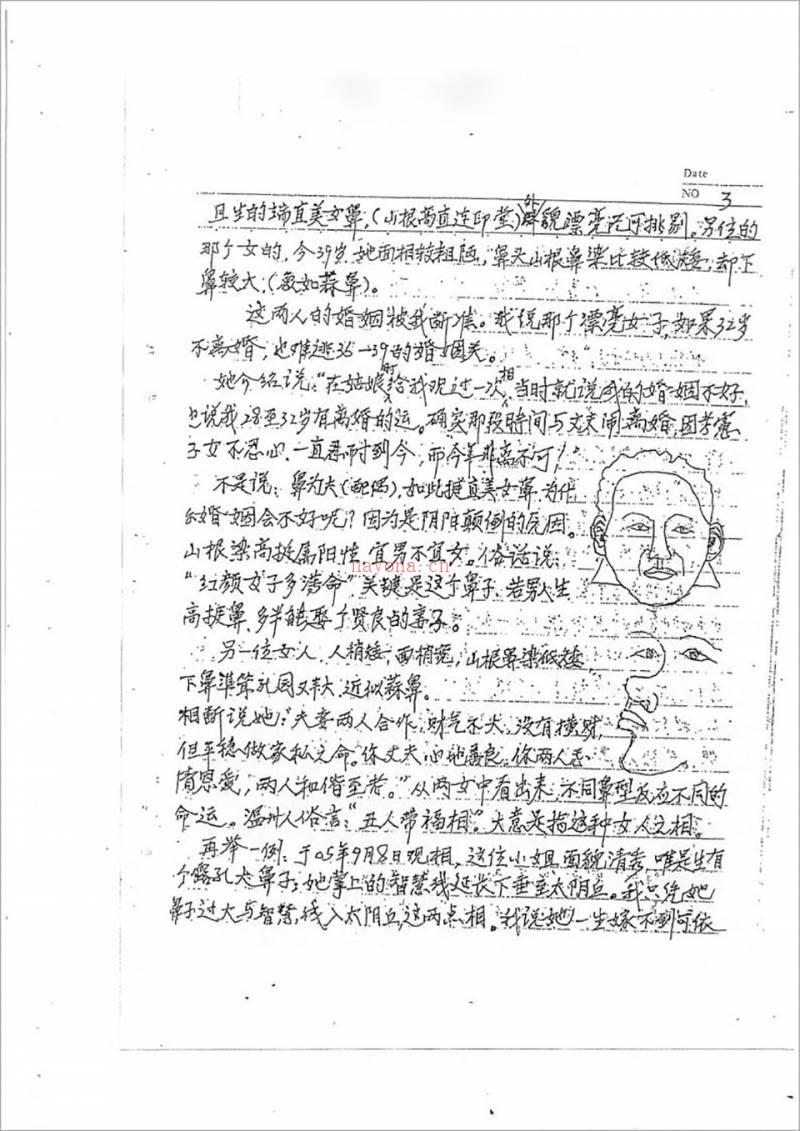 Date
NO 3
且生的端直美女鼻,(山根高直连印堂)外貌漂亮无可挑剔。另位的
那个女的,今39岁,她面相较粗陋,鼻头山根鼻梁比较低矮,却下
鼻较大,(般如蒜鼻)。
这两人的婚姻被我断准。我说那个漂亮女子,如果32岁
不离婚,也难逃35-39的婚姻关。
她介绍说:“在姑娘时给我观过一次相,当时就说我的婚姻不好,
也说我28至32岁有离婚的运。确实那段时间与丈夫闹离婚,因考虑
子女不忍心,一直忍耐到今,而今年非离不可!”
不是说:鼻为夫(配偶),如此挺直美女鼻,为什
么婚姻会不好呢?因为是阴阳颠倒的原因。
山根梁高挺属阳性,宜男不宜女。俗话说:
“红颜女子多薄命”关键是这个鼻子,若男人生
高挺鼻,多半能娶个贤良的妻子。
nayona.cn
另一位女人,人稍矮,面稍宽,山根鼻梁低矮,
下鼻準耸孔园又大,近似蒜鼻。
相断说她:“夫妻两人合作,财气不大,没有横财,
但平稳做家私之命。你丈夫心地善良,你两人
情恩爱,两人和偕至老。”从两女中看出来,不同鼻型反应不同的
命运。温州人俗言:“丑人带福相”。大意是指这种女人之相。
再举一例:于05年9月8日观相,这位小姐面貌清秀,唯是生有
个露孔大鼻子,她掌上的智慧线延长下垂至太阴丘。我只凭她
鼻子过大与智慧线入太阴丘,这两点相。我说她一生嫁不到可依